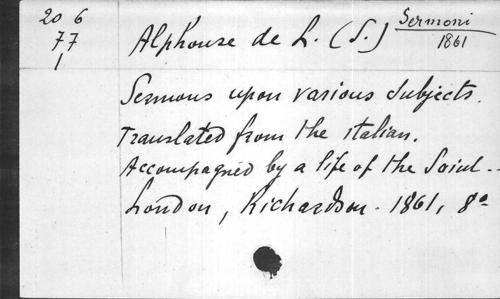 20 6
77
1
Alphonse de L. (S.) Sermoni
1861
Sermons upon various subjects.
Translated from the italian.
Accompagned by a life of the Saint -
London, Richardson - 1861, 8°